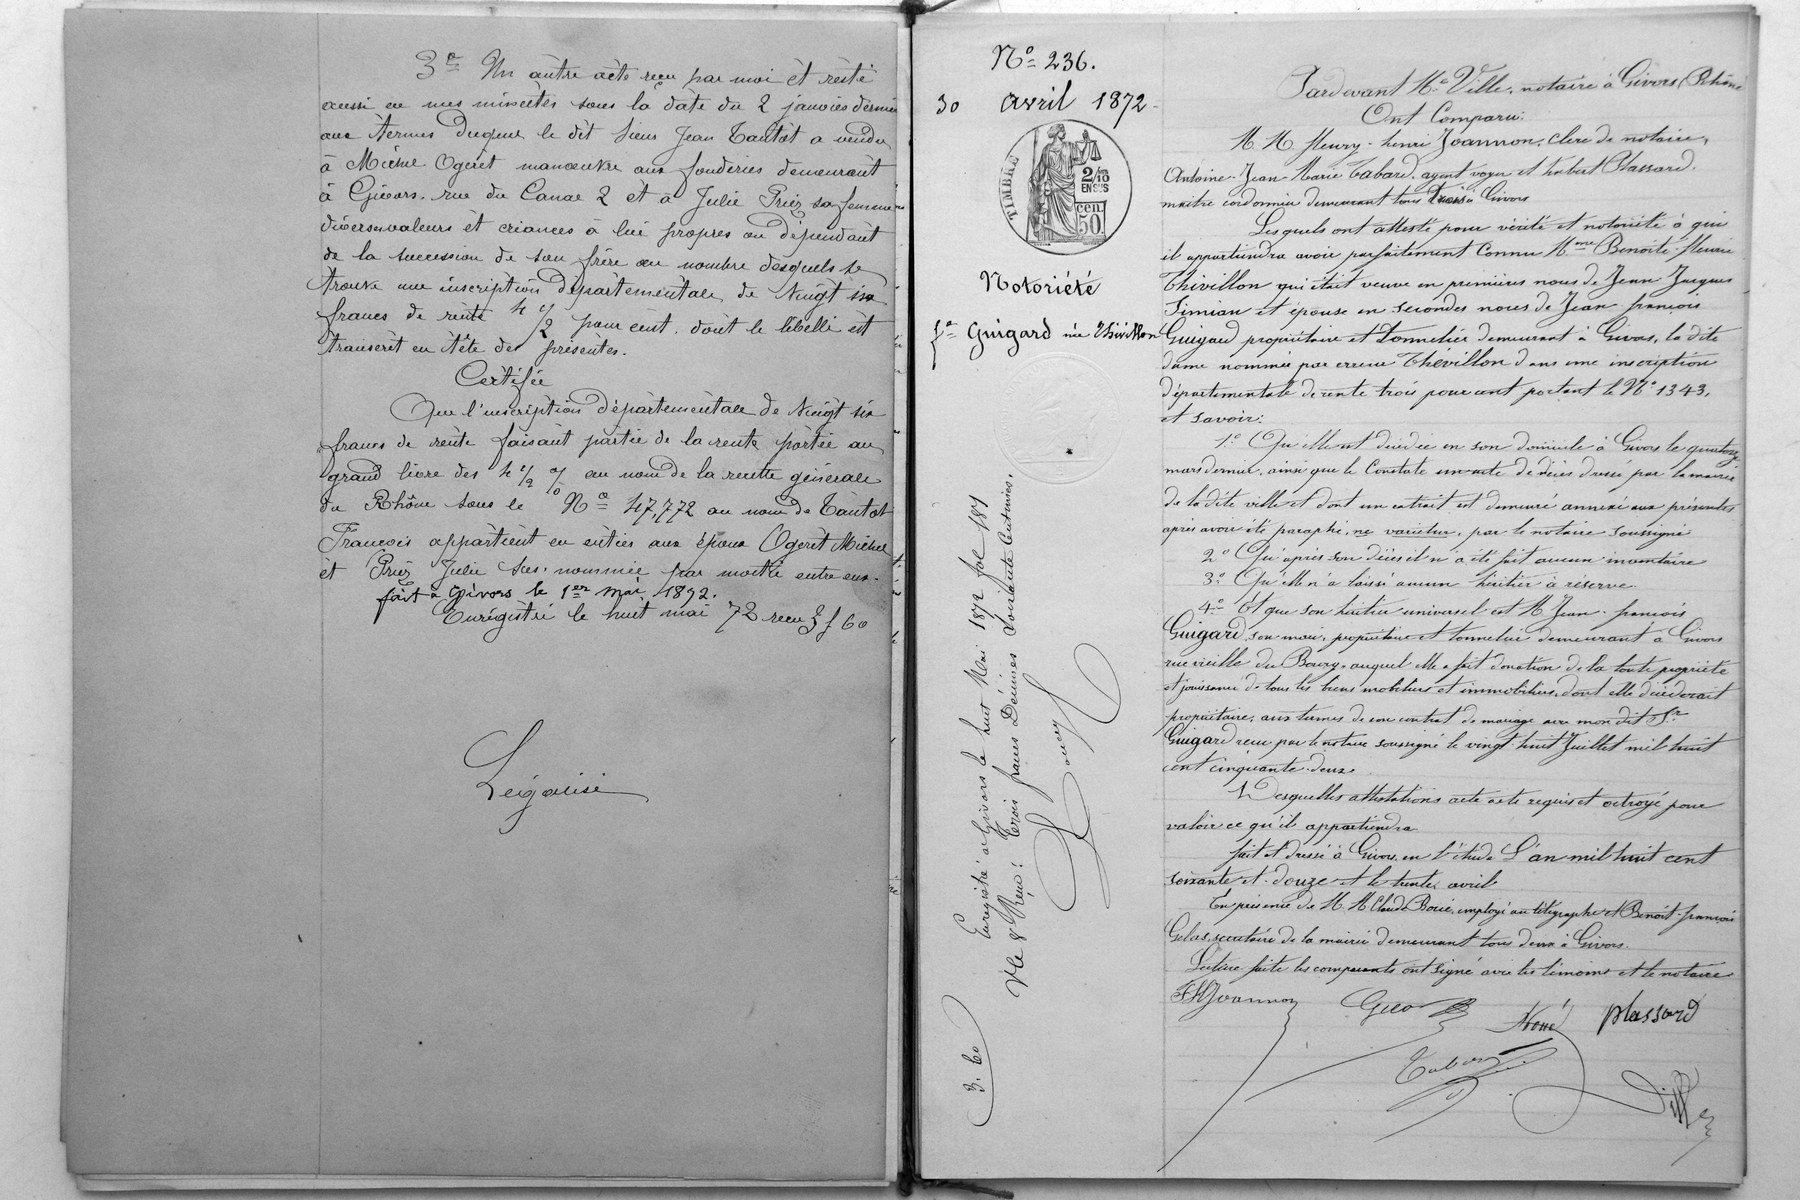 3e Un autre acte reçu par moi et resté
aussi en mes minutes sous la date du 2 janvier dernier
aux termes duquel le dit Sieur Jean Tantôt a vendu
à Michel Ogeret manœuvre aux fonderies demeurant
à Givors, rue du Canal 2 et à Julie Priez sa femme
diverses valeurs et créances à lui propres ou dépendant
de la succession de son frère au nombre desquels se
trouve une inscription départementale de vingt six
francs de rente 4 1/2 pour cent dont le libellé est
transcrit en tête des présentes.
Certifie
Que l'inscription départementale de vingt six
francs de rente faisant partie de la rente portée au
grand livre des 4 1/2 % au nom de la recette générale
du Rhône sous le No 47,772 au nom de Tantôt
François appartient en entier aux époux Ogeret Michel
et Priez Julie sus-nommés par moitié entre eux.
fait à Givors le 1er mai 1872.
Enregistré le huit mai 72 reçu 3 f 60
Légalisé
No 236.
30 avril 1872
TIMBRE
2/10
EN SUS
50 cen
Notoriété
Guigard née Thivillon
Enregistré à Givors le huit Mai 1872 fol 187
Vle 8 Reçu: Trois francs Décimes soixante Centimes.
3. 60
Pardevant Me Ville, notaire à Givors (Rhône
Ont Comparu:
M. M. fleury-henri Joannon, clerc de notaire,
Antoine-Jean Marie Tabard, agent voyer et hubert Plassard,
maître cordonnier demeurant tous trois à Givors
Lesquels ont attesté pour vérité et notoriété à qui
il appartiendra avoir parfaitement connu Mme Benoîte fleurie
Thivillon qui était veuve en premières noces de Jean Jacques
Simian et épouse en secondes noces de Jean françois
Guigard propriétaire et tonnelier demeurant à Givors, la dite
dame nommée par erreur Thévillon dans une inscription
départementale de rente trois pour cent portant le No 1343,
et savoir:
1o Qu'elle est décédée en son domicile à Givors le quatorze
mars dernier, ainsi que le constate un acte de décès dressé par la mairie
de la dite ville et dont un extrait est demeuré annexé aux présentes
après avoir été paraphé, ne varietur, par le notaire soussigné
2o Qu'après son décès il n'a été fait aucun inventaire
3o Qu'elle n'a laissé aucun héritier à réserve
4o Et que son héritier universel est M. Jean-françois
Guigard, son mari, propriétaire et tonnelier demeurant à Givors
rue vieille du Bourg, auquel elle a fait donation de la toute propriété
et jouissance de tous les biens mobiliers et immobiliers, dont elle décéderait
propriétaire, aux termes de son contrat de mariage avec mon dit Sr
Guigard reçu par le notaire soussigné le vingt-huit Juillet mil huit
cent cinquante-deux.
Desquelles attestations acte a été requis et octroyé pour
valoir ce qu'il appartiendra
fait et dressé à Givors, en l'étude L'an mil huit cent
soixante-et-douze et le trente avril
En présence de M. M. Claude Boué, employé au télégraphe et Benoît-françois
Gelas, secrétaire de la mairie demeurant tous deux à Givors.
Lecture faite les comparants ont signé avec les témoins et le notaire
FHJoannon
Gelas
Boué
plassard
Tabard
Ville